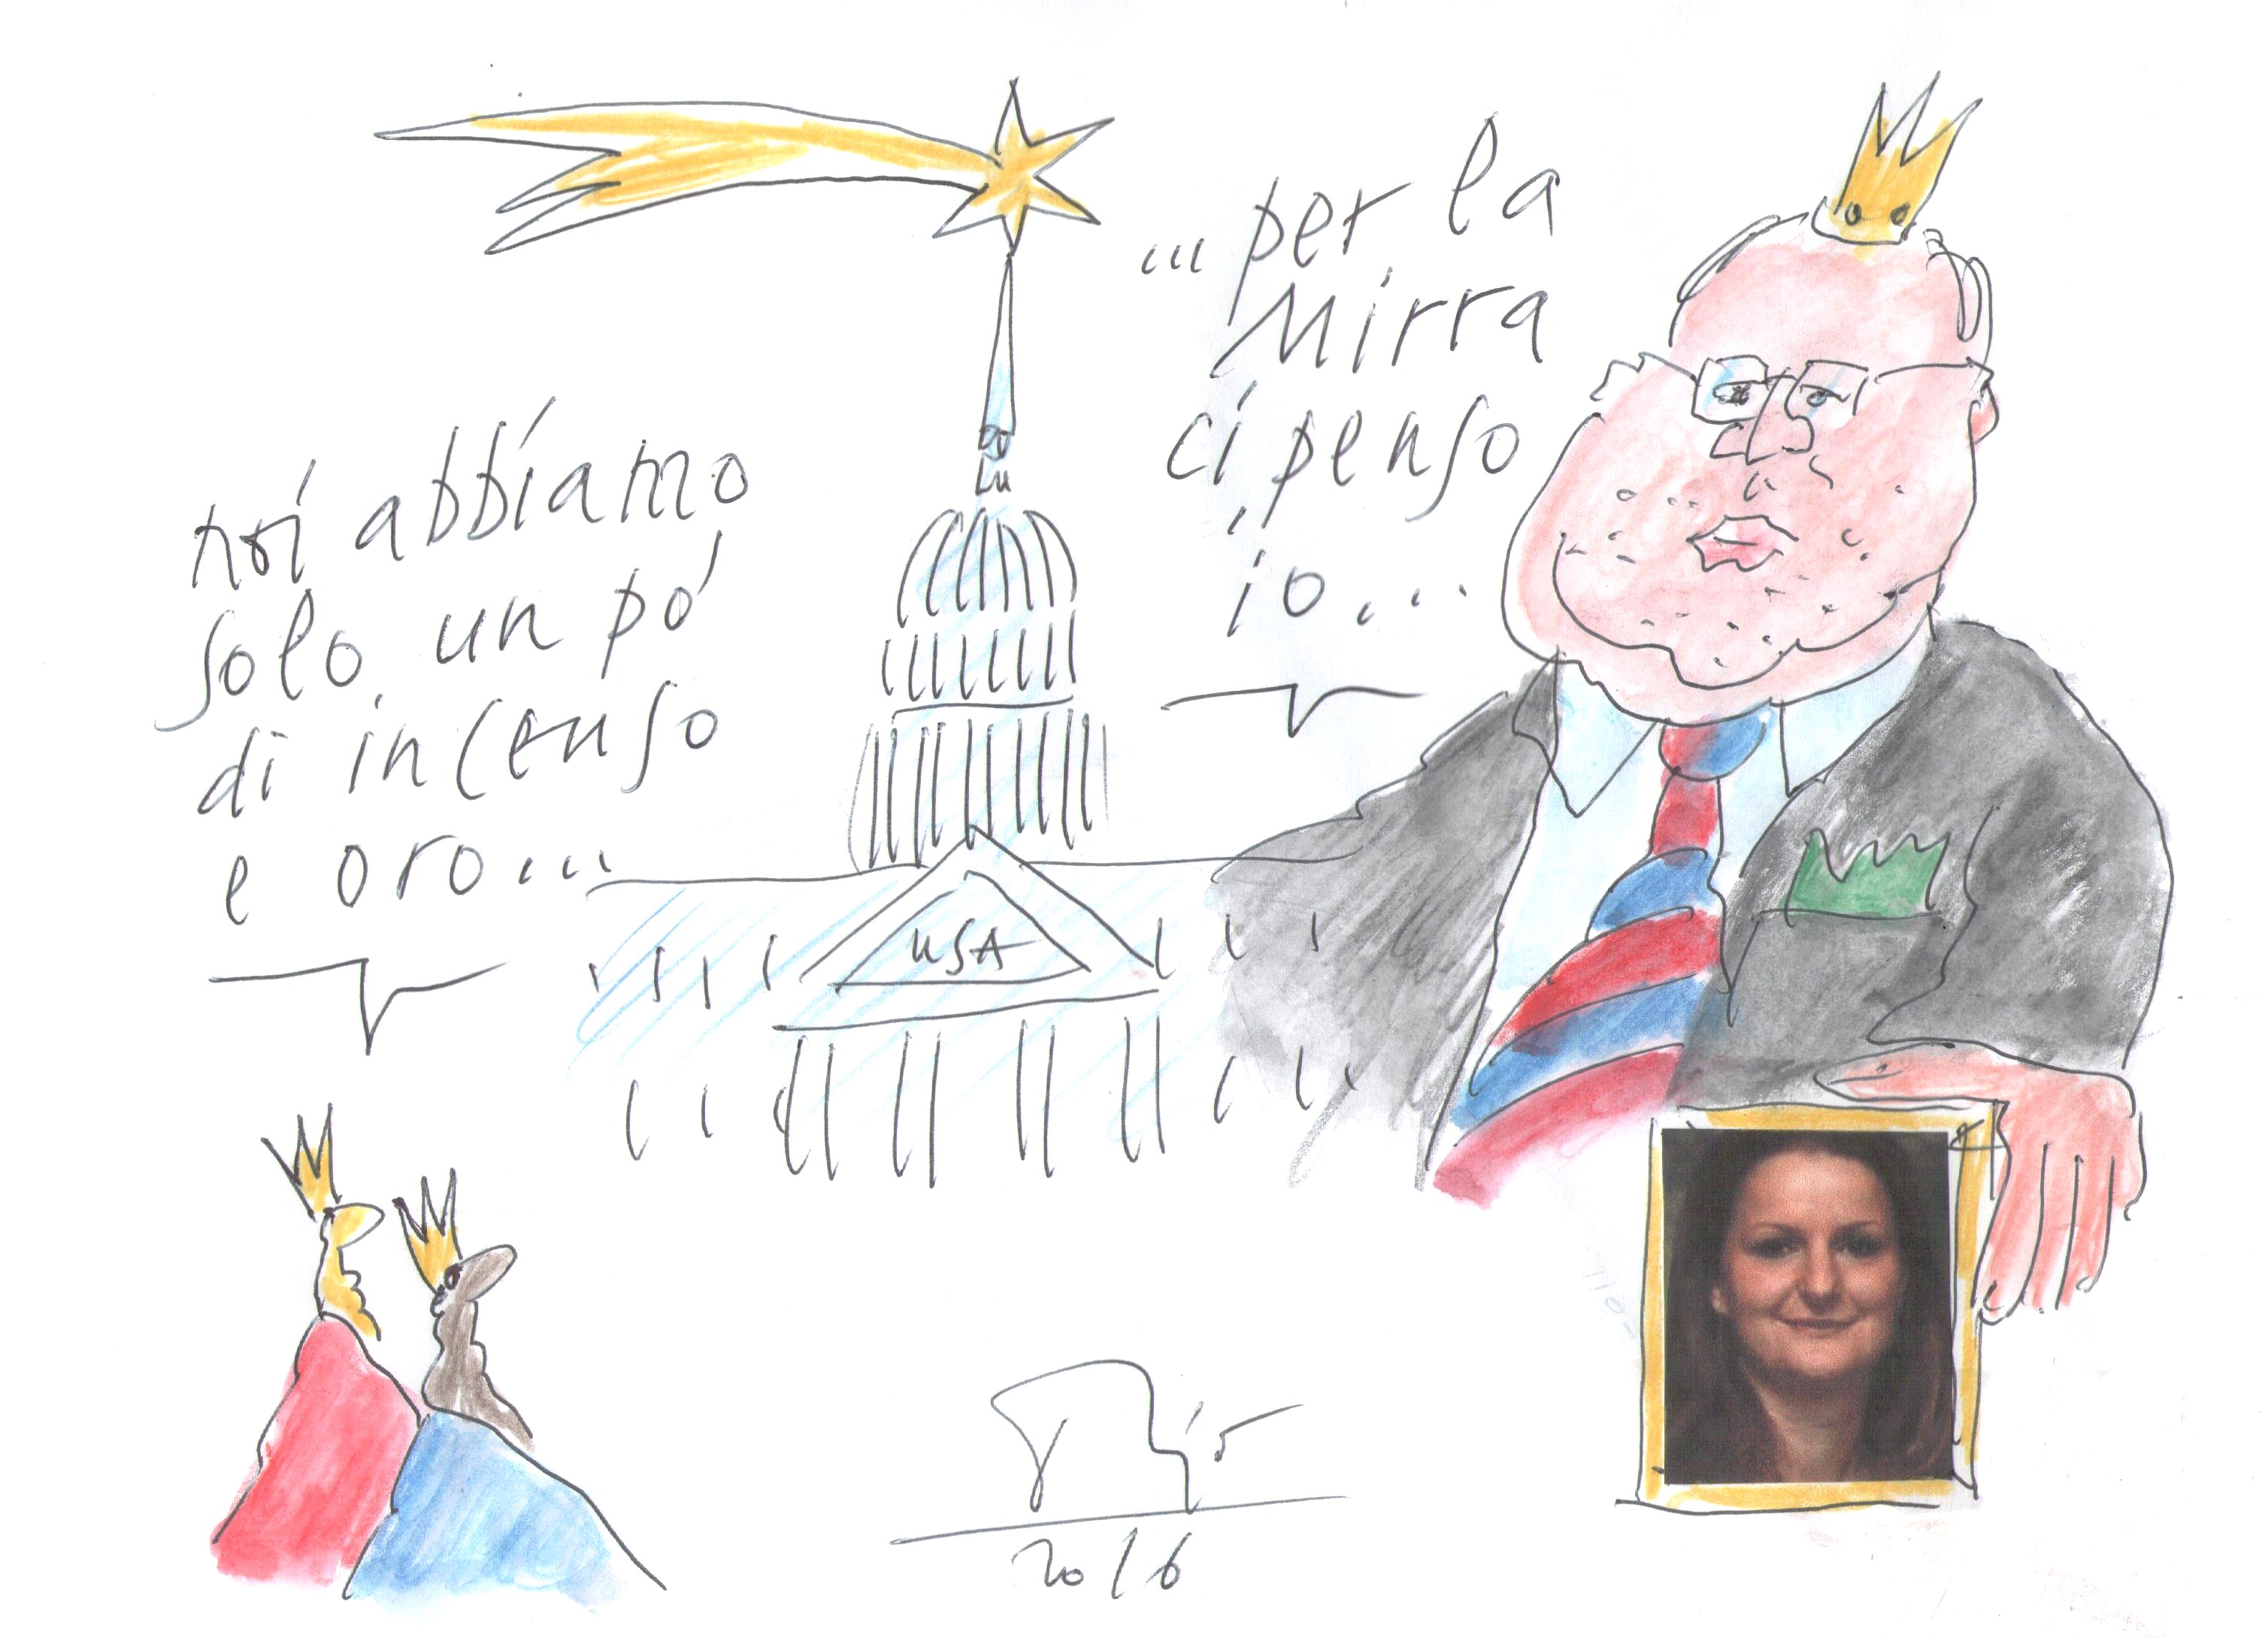 noi abbiamo
solo un pó
di incenso
e oro...
...per la
Mirra
ci penso
io...
USA
2016